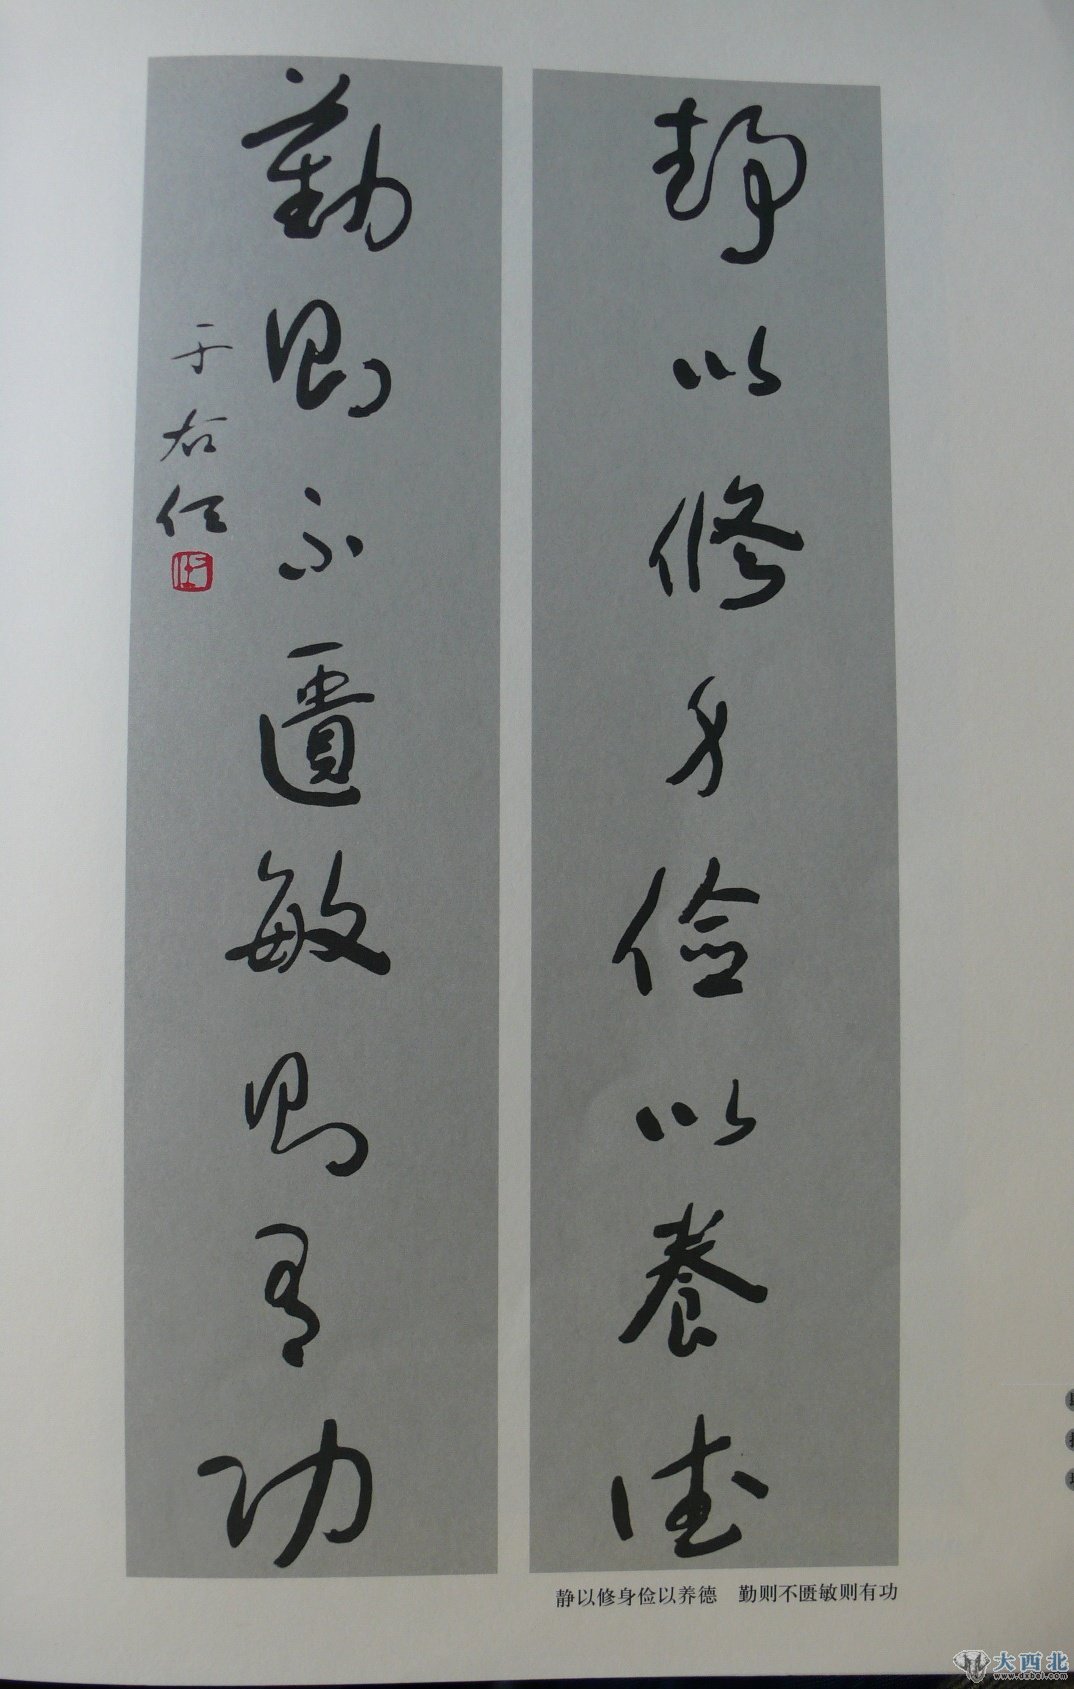 静以修身儉以養德
勤則不匱敏則有功
于右任
静以修身俭以养德 勤则不匮敏则有功
大西北
www.dxbei.com